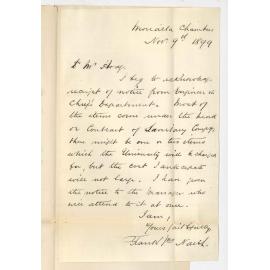 Chambers
Nov 9th 1899
I beg to acknowledge
receipt of notice from Engineer in
Chief's Department. Most of
the items come under the head
or Contract of Sanitary Compy,
there might be one or two items
which the University will be charged
for, but the cost I anticipate
will not be large. I have given
the notice to the Manager who
will attend to it at once.
I am,
Yours faithfully
Frank